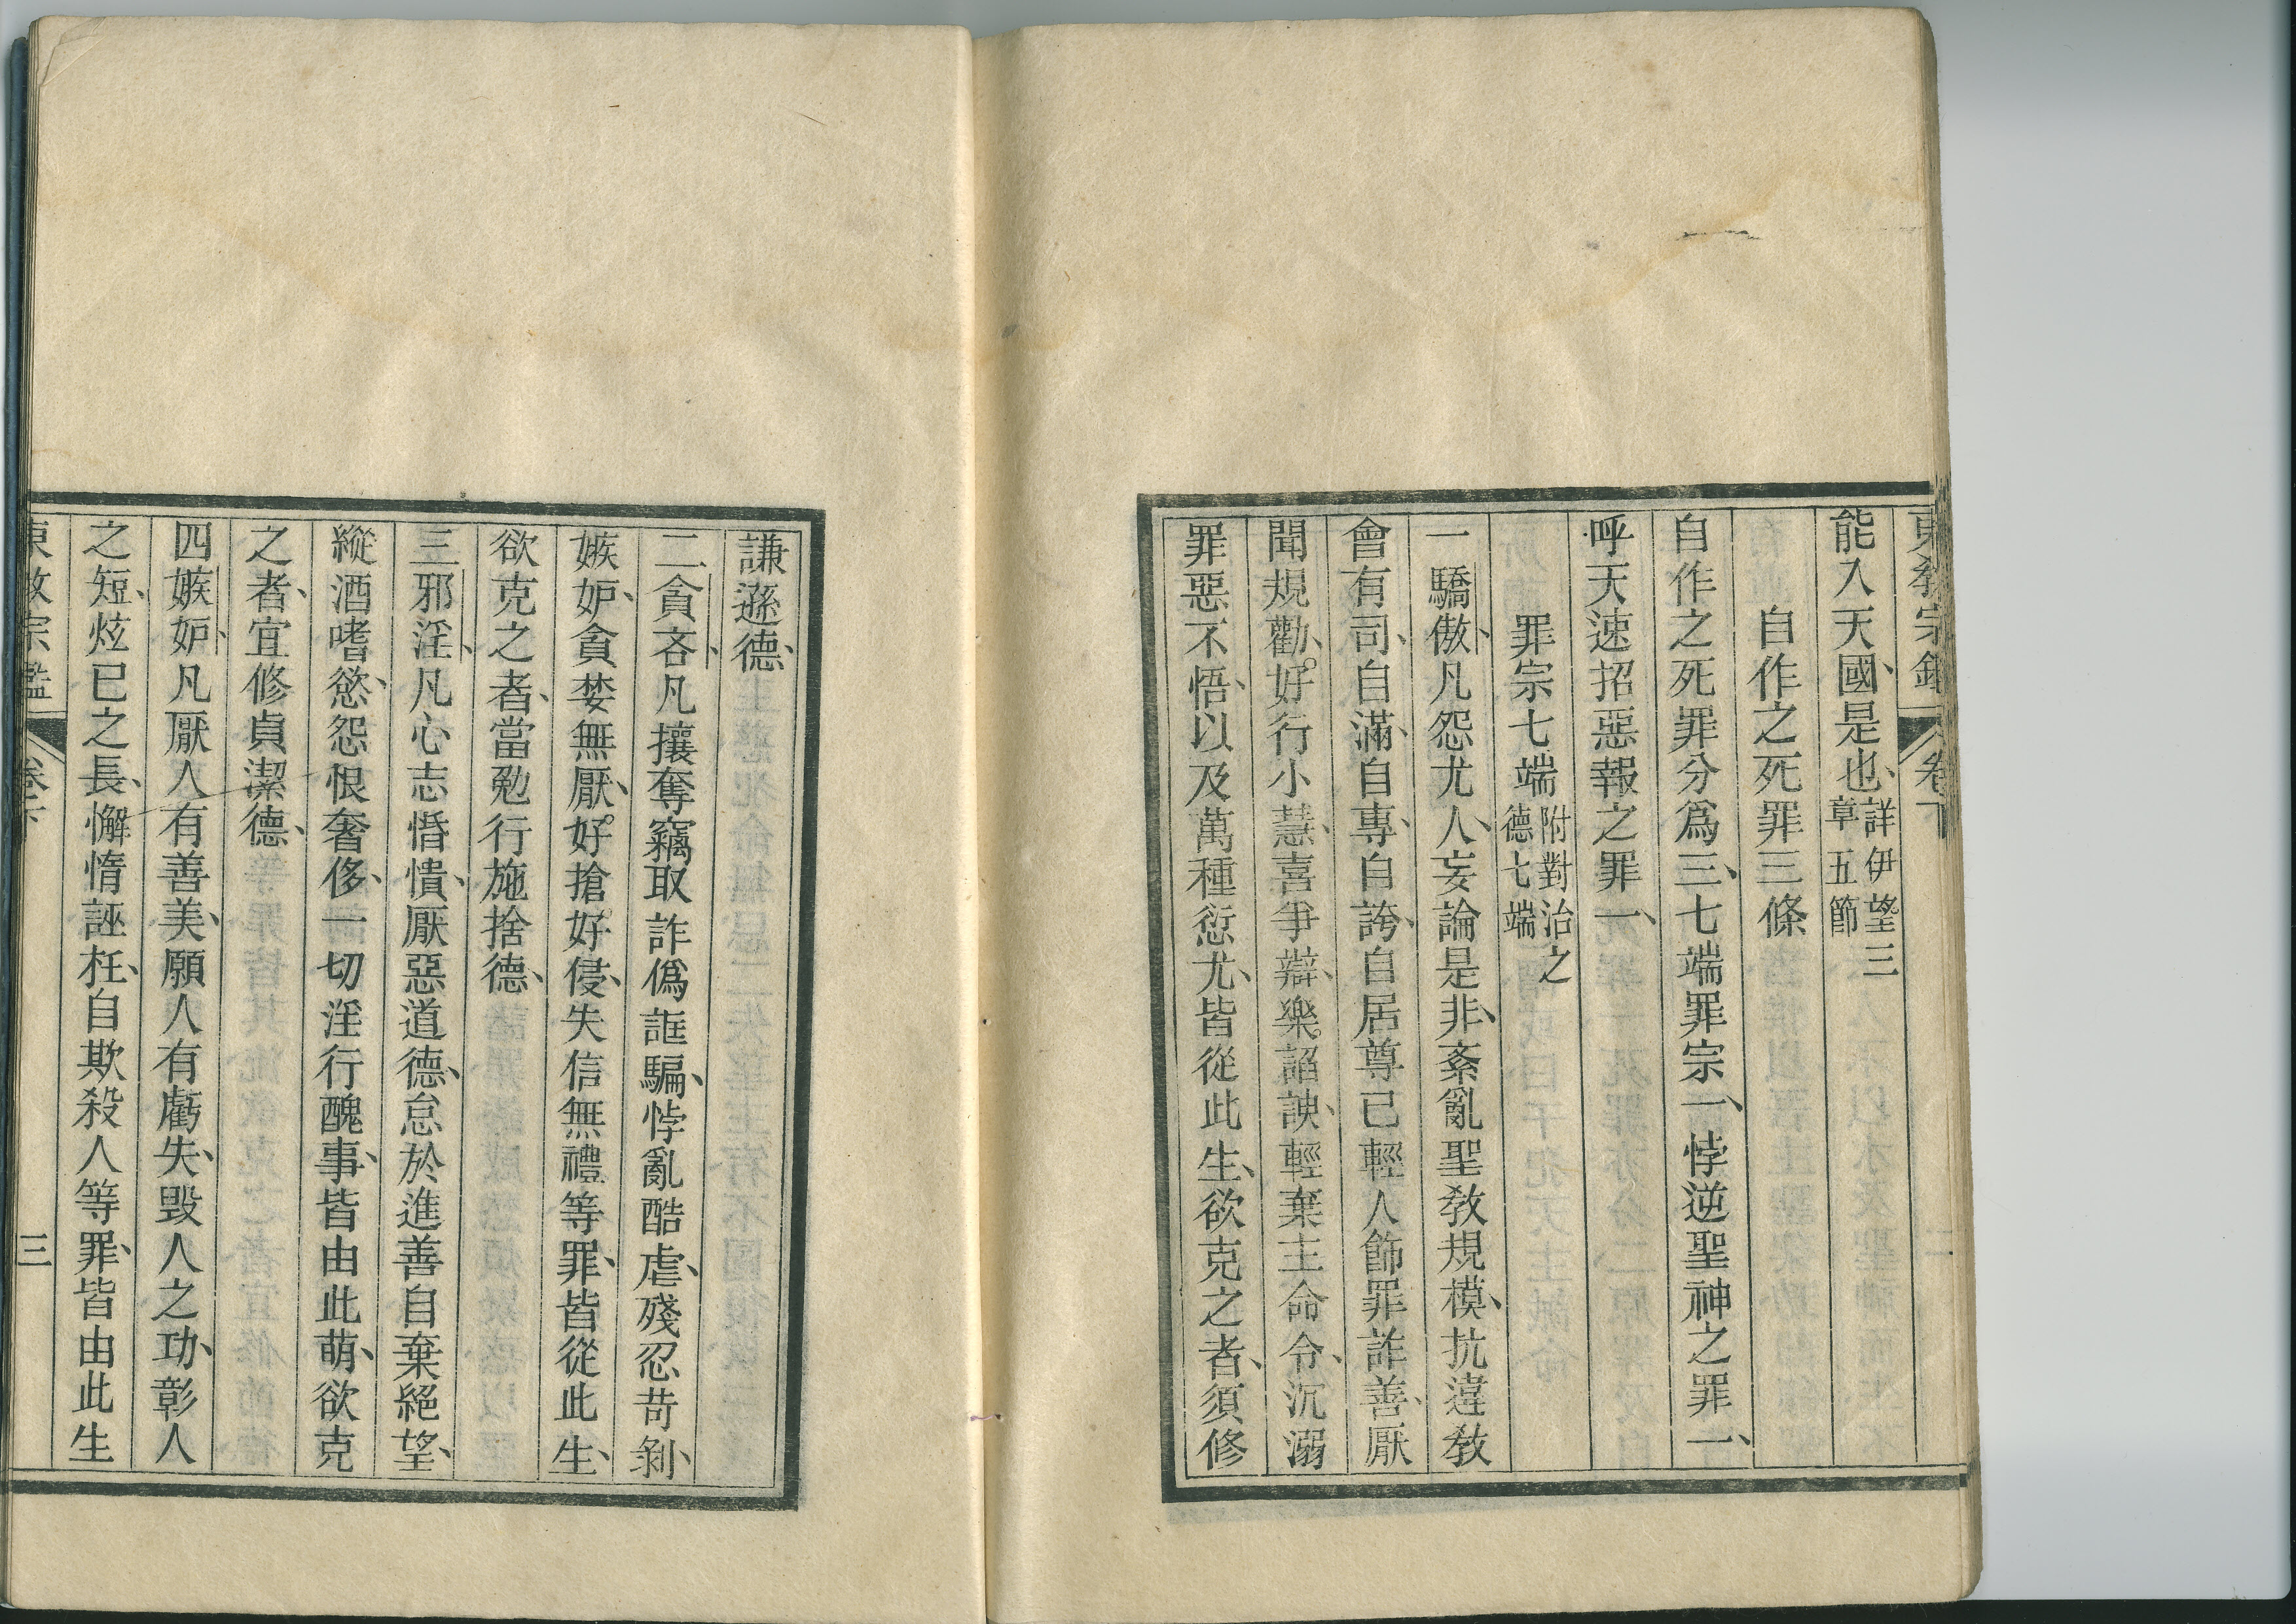 東敎宗鑑 卷下
能入天國是也、詳伊望三章五節
自作之死罪三條
自作之死罪分爲三、七端罪宗一、悖逆聖神之罪一、
呼天速招惡報之罪一、
罪宗七端附對治之德七端
一驕傲、凡怨尤人、妄論是非、紊亂聖敎規模、抗違敎
會有司、自滿、自專、自誇、自居尊己輕人飾罪詐善、厭
聞規勸、好行小慧、喜爭辯、樂諂諛、輕棄主命令、沉溺
罪惡不悟、以及萬種愆尤、皆從此生、欲克之者、須修
謙遜德、
二貪吝、凡攘奪竊取詐僞誆騙、悖亂酷虐、殘忍苛剝、
嫉妒、貪婪無厭、好搶好侵、失信無禮等罪、皆從此生、
欲克之者、當勉行施捨德、
三邪淫、凡心志惛憒、厭惡道德、怠於進善自棄絕望、
縱酒嗜慾、怨恨奢侈、一切淫行醜事、皆由此萌、欲克
之者、宜修貞潔德、
四嫉妒、凡厭人有善美、願人有虧失、毀人之功、彰人
之短、炫已之長、懈惰誣枉、自欺殺人等罪、皆由此生
東敎宗鑑 卷下 三